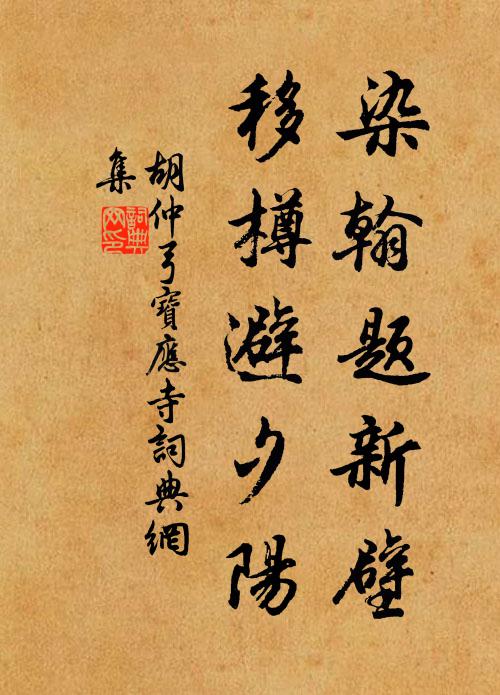 染翰題新壁
移樽避夕陽
胡仲弓寶應寺詞典網
集
詞典網印